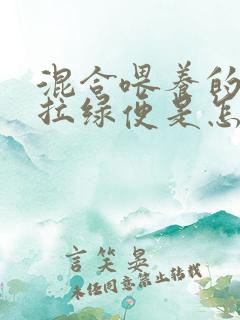 混合喂养的
拉绿便是怎
言笑晏
未经同意禁止转载